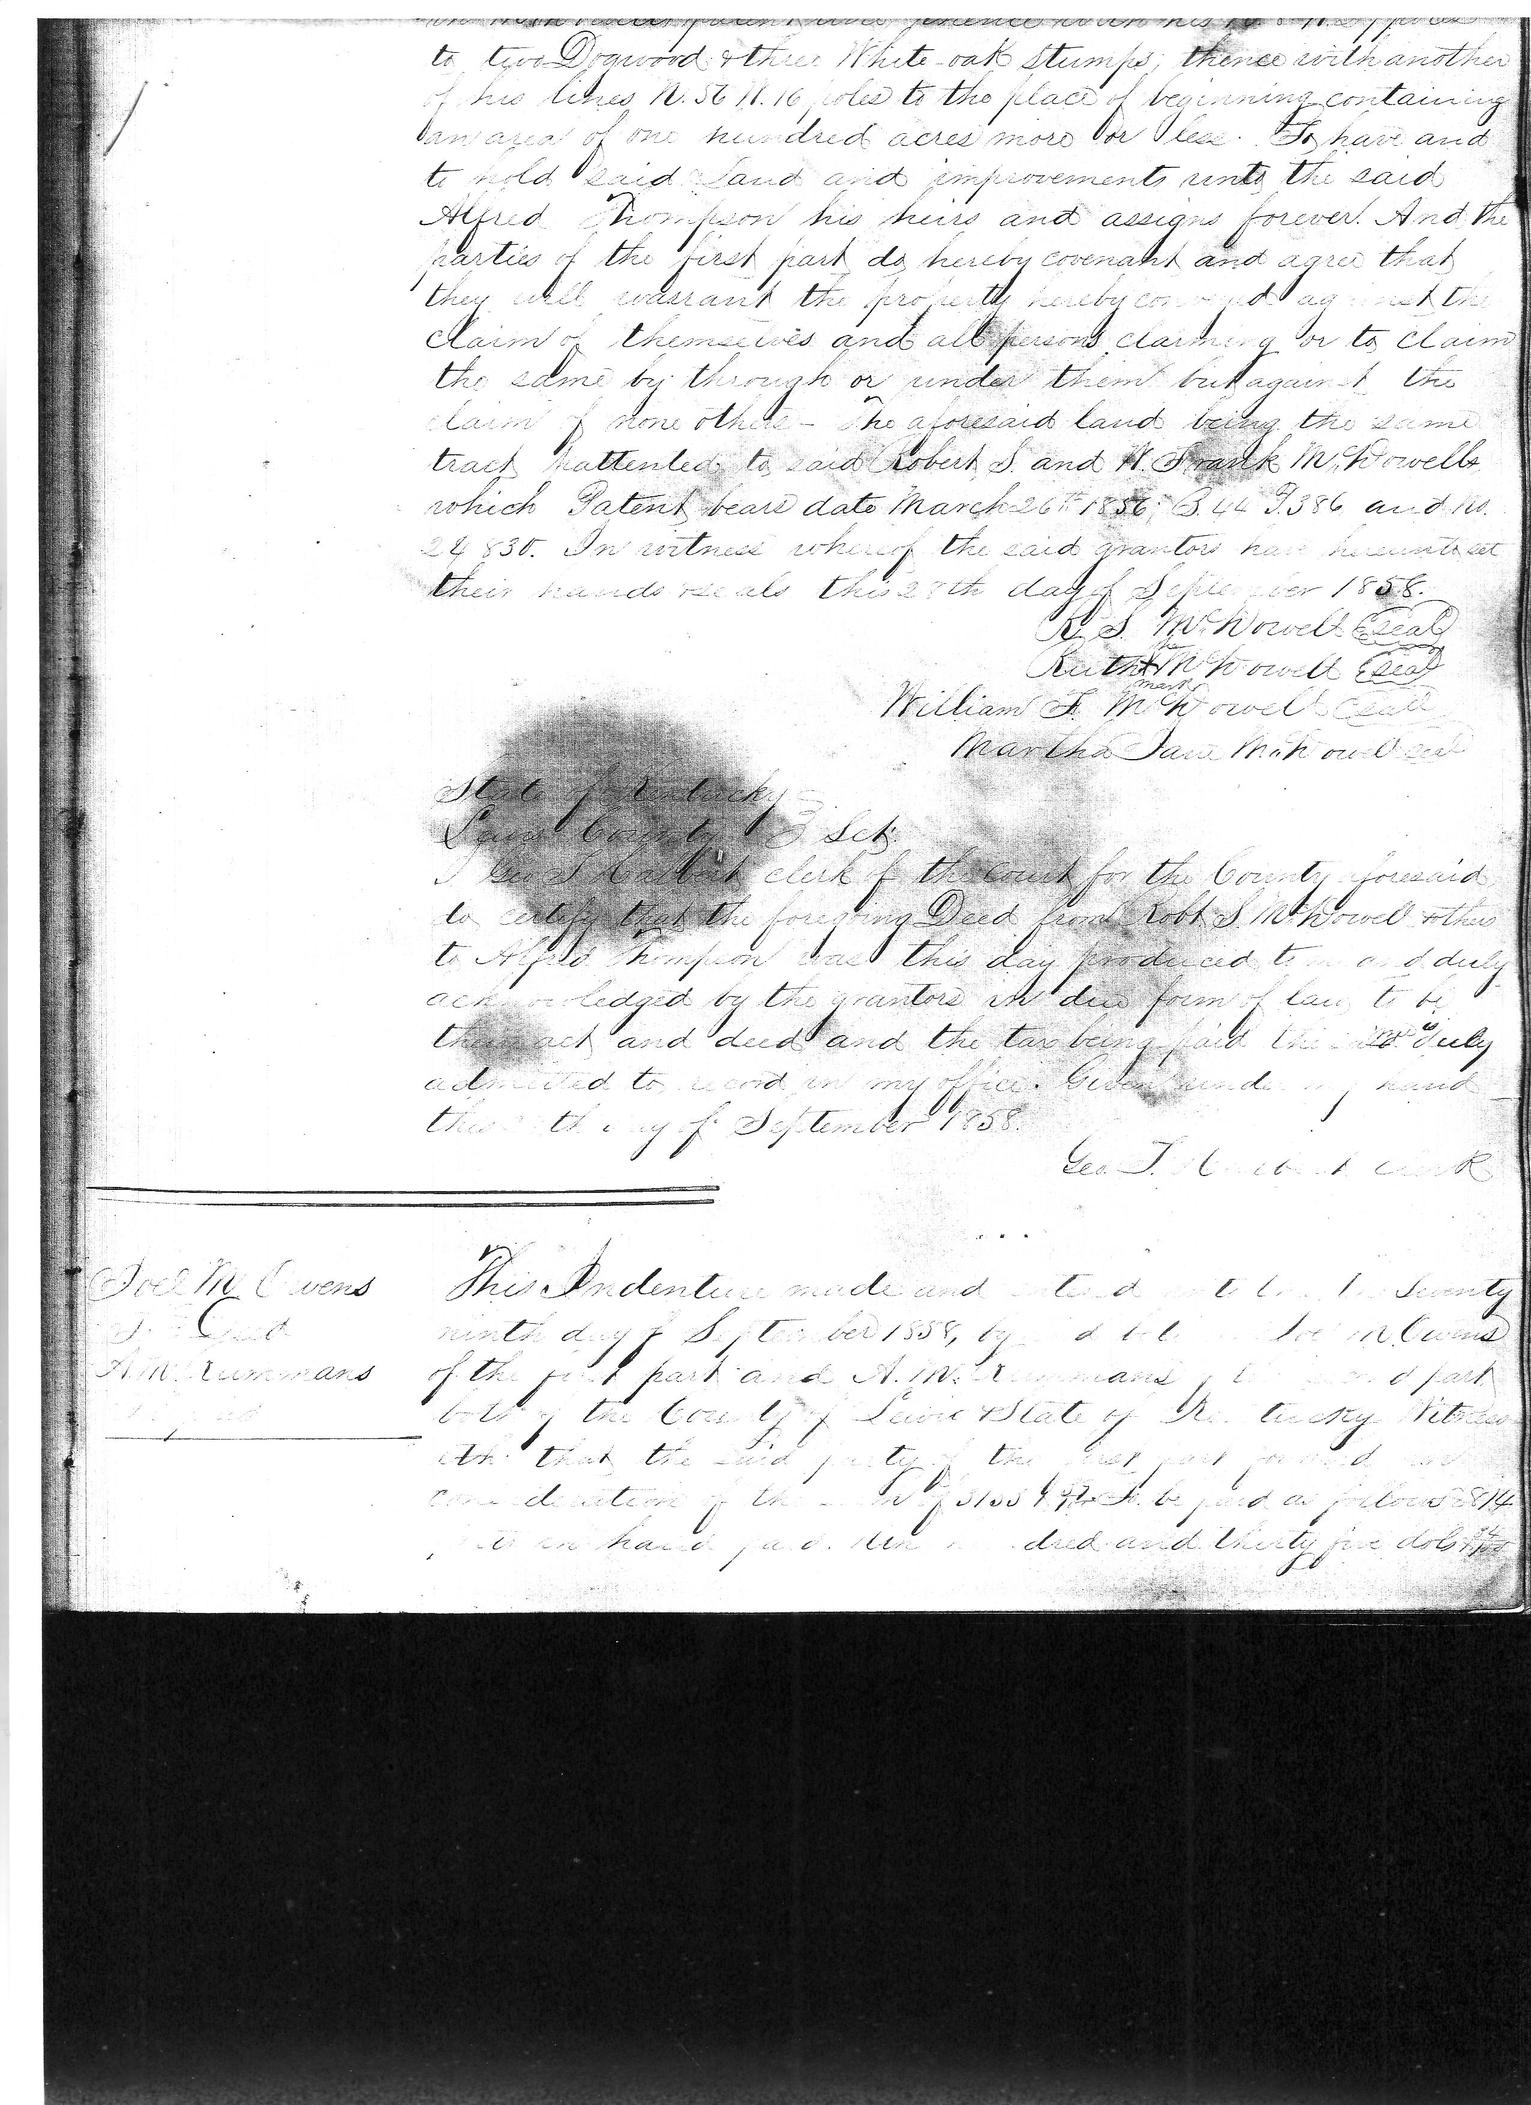 to two Dogwood & three White-oak Stumps; thence with another
of his lines N. 56 W. 16 poles to the place of beginning containing
an area of one hundred acres more or less. To have and
to hold said Land and improvements unto the said
Alfred Thompson his heirs and assigns forever. And the
parties of the first part do hereby covenant and agree that
they will warrant the property hereby conveyed against the
claim of themselves and all persons claiming or to claim
the same by through or under them but against the
claim of none others - The aforesaid land being the same
tract pattented to said Robert S. and W. Frank McDowells
which Patent bears date March 26th 1856; B. 44 P. 386 and No.
24830. In witness whereof the said grantors have hereunto set
their hands & seals this 28th day of September 1858.
R. S. McDowell Seal
her
Ruth X McDowell Seal
mark
William F. McDowell Seal
Martha Jane McDowell Seal
State of Kentucky
Lewis County Sct.
I Geo T. clerk of the Court for the County aforesaid
do certify that the foregoing Deed from Robt S. McDowell & others
to Alfred Thompson was this day produced to me and duly
acknowledged by the grantors in due form of law to be
their act and deed and the tax being paid the duly
admitted to record in my office. Given under my hand
this th day of September 1858.
Geo T. clerk
Joel M Owens
Deed
A. M. Rummans
This Indenture made and entered into this the twenty
ninth day of September 1858, by and between Joel M. Owens
of the first part and A. M. Rummans of the second part
both of the County of Lewis & State of Kentucky Witness
eth that the said party of the first part for and in
consideration of the sum of to be paid as follows
in hand paid. hundred and thirty five dols